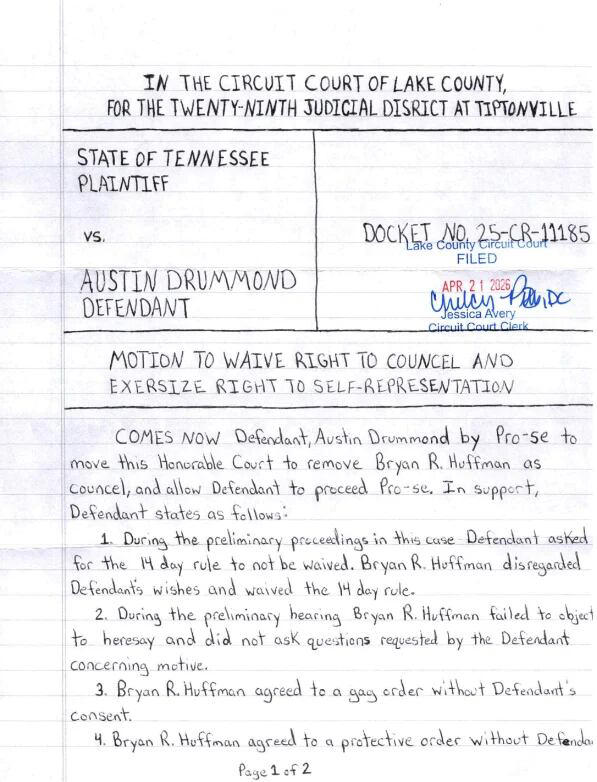 IN THE CIRCUIT COURT OF LAKE COUNTY,
FOR THE TWENTY-NINTH JUDICIAL DISRICT AT TIPTONVILLE
STATE OF TENNESSEE
PLAINTIFF
vs.
DOCKET NO. 25-CR-11185
Lake County Circuit Court
FILED
APR 21 2026
Jessica Avery
Circuit Court Clerk
AUSTIN DRUMMOND
DEFENDANT
MOTION TO WAIVE RIGHT TO COUNCEL AND
EXERSIZE RIGHT TO SELF-REPRESENTATION
COMES NOW Defendant, Austin Drummond by Pro-se to
move this Honorable Court to remove Bryan R. Huffman as
councel, and allow Defendant to proceed Pro-se. In support,
Defendant states as follows:
1. During the preliminary proceedings in this case Defendant asked
for the 14 day rule to not be waived. Bryan R. Huffman disregarded
Defendant's wishes and waived the 14 day rule.
2. During the preliminary hearing Bryan R. Huffman failed to object
to heresay and did not ask questions requested by the Defendant
concerning motive.
3. Bryan R. Huffman agreed to a gag order without Defendant's
consent.
4. Bryan R. Huffman agreed to a protective order without Defenda
Page 1 of 2